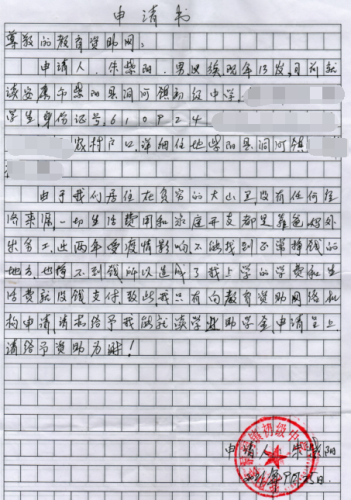 申请书
尊敬的教育资助网:
申请人,朱紫阳,男 族现年13岁,目前就
读安康市紫阳县洞河镇初级中学,
学生,身份证号,610924
农村户口,详细住地紫阳县洞河镇
由于我们居住在贫穷的大山里没有任何经
济来源,一切生活费用和家庭开支都是靠爸妈外
出务工,近两年受疫情影响,不能找到正常挣钱的
地方,也挣不到钱所以造成了我上学的学费和生
活费就没钱支付致此我只有向教育资助网络机
构申请,请求给予我能就读学业助学金,申请呈上
请给予资助为盼!
镇初级中
申请人:朱紫阳
年9月25日